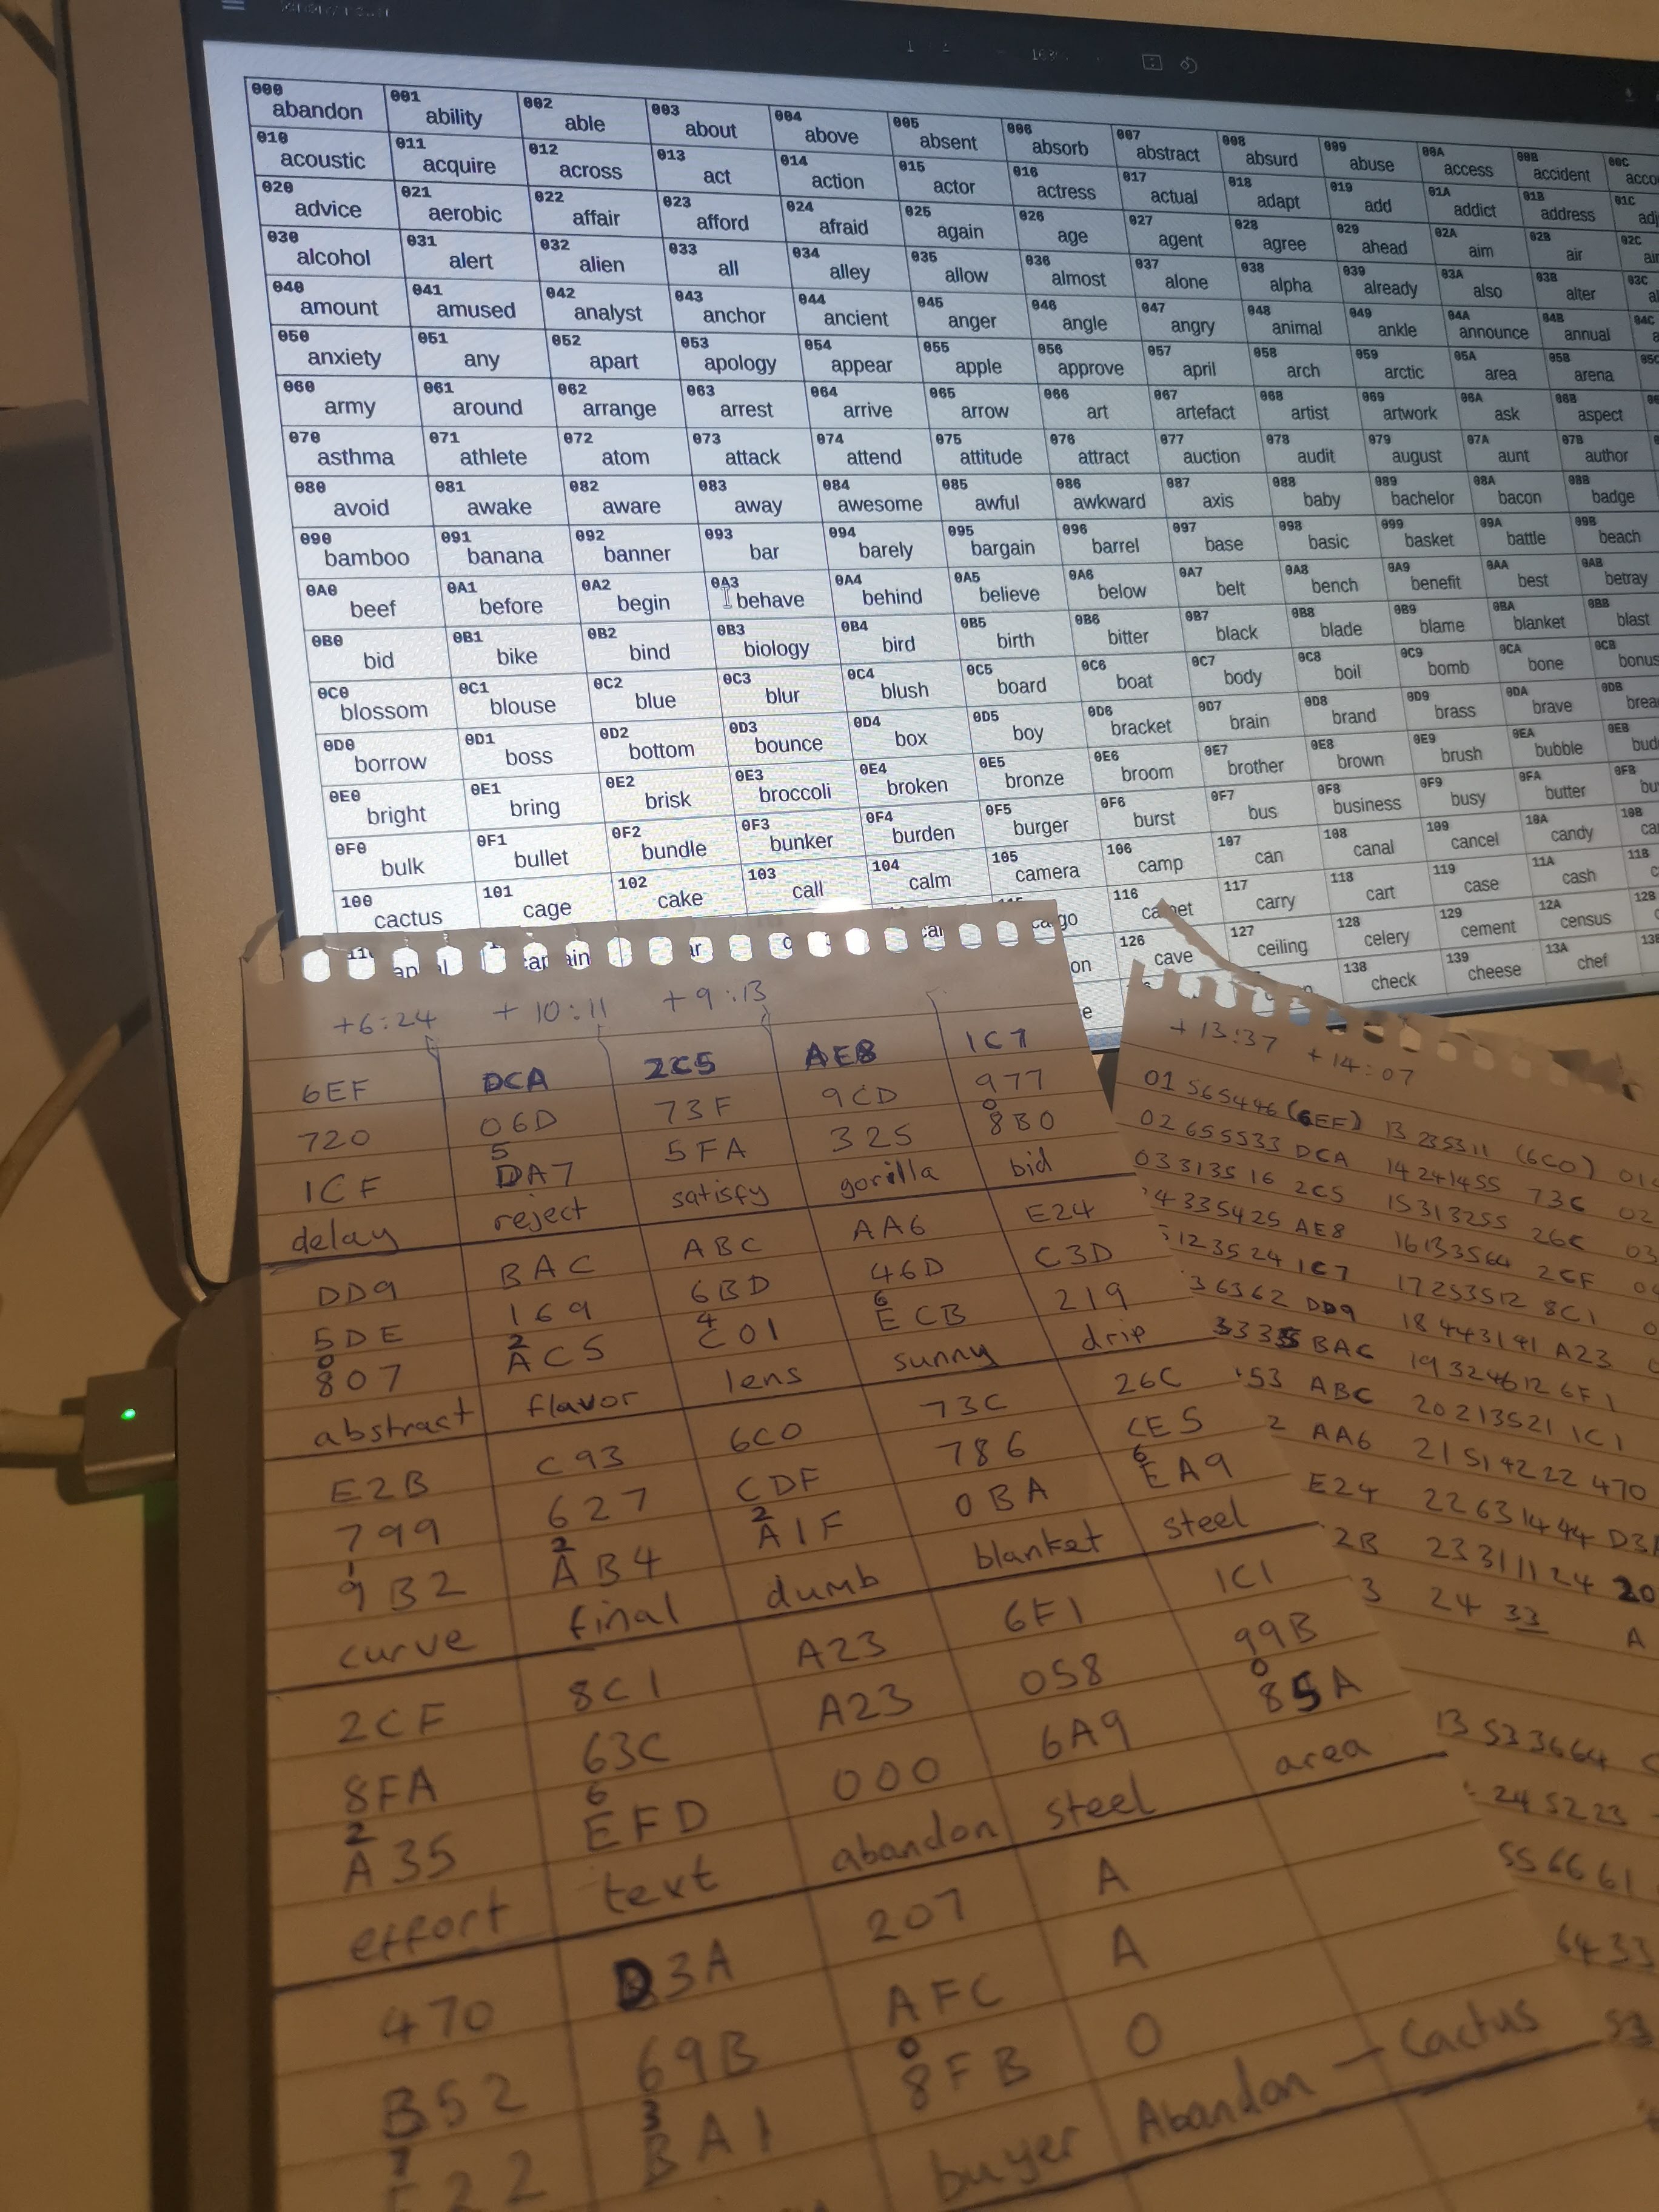 000 abandon 001 ability 002 able 003 about 004 above 005 absent 006 absorb 007 abstract 008 absurd 009 abuse 00A access 00B accident 00C
010 acoustic 011 acquire 012 across 013 act 014 action 015 actor 016 actress 017 actual 018 adapt 019 add 01A addict 01B address 01C
020 advice 021 aerobic 022 affair 023 afford 024 afraid 025 again 026 age 027 agent 028 agree 029 ahead 02A aim 02B air 02C
030 alcohol 031 alert 032 alien 033 all 034 alley 035 allow 036 almost 037 alone 038 alpha 039 already 03A also 03B alter 03C
040 amount 041 amused 042 analyst 043 anchor 044 ancient 045 anger 046 angle 047 angry 048 animal 049 ankle 04A announce 04B annual 04C
050 anxiety 051 any 052 apart 053 apology 054 appear 055 apple 056 approve 057 april 058 arch 059 arctic 05A area 05B arena
060 army 061 around 062 arrange 063 arrest 064 arrive 065 arrow 066 art 067 artefact 068 artist 069 artwork 06A ask 06B aspect
070 asthma 071 athlete 072 atom 073 attack 074 attend 075 attitude 076 attract 077 auction 078 audit 079 august 07A aunt 07B author
080 avoid 081 awake 082 aware 083 away 084 awesome 085 awful 086 awkward 087 axis 088 baby 089 bachelor 08A bacon 08B badge
090 bamboo 091 banana 092 banner 093 bar 094 barely 095 bargain 096 barrel 097 base 098 basic 099 basket 09A battle 09B beach
0A0 beef 0A1 before 0A2 begin 0A3 behave 0A4 behind 0A5 believe 0A6 below 0A7 belt 0A8 bench 0A9 benefit 0AA best 0AB betray
0B0 bid 0B1 bike 0B2 bind 0B3 biology 0B4 bird 0B5 birth 0B6 bitter 0B7 black 0B8 blade 0B9 blame 0BA blanket 0BB blast
0C0 blossom 0C1 blouse 0C2 blue 0C3 blur 0C4 blush 0C5 board 0C6 boat 0C7 body 0C8 boil 0C9 bomb 0CA bone 0CB bonus
0D0 borrow 0D1 boss 0D2 bottom 0D3 bounce 0D4 box 0D5 boy 0D6 bracket 0D7 brain 0D8 brand 0D9 brass 0DA brave 0DB
0E0 bright 0E1 bring 0E2 brisk 0E3 broccoli 0E4 broken 0E5 bronze 0E6 broom 0E7 brother 0E8 brown 0E9 brush 0EA bubble 0EB
0F0 bulk 0F1 bullet 0F2 bundle 0F3 bunker 0F4 burden 0F5 burger 0F6 burst 0F7 bus 0F8 business 0F9 busy 0FA butter 0FB
100 cactus 101 cage 102 cake 103 call 104 calm 105 camera 106 camp 107 can 108 canal 109 cancel 10A candy 10B
116 117 carry 118 cart 119 case 11A cash 11B
126 cave 127 ceiling 128 celery 129 cement 12A census 12B
138 check 139 cheese 13A chef
+6:24 +10:11 +9:13
6EF DCA 2C5 AE8 1C7
720 06D 73F 9CD 977
5 0
1CF DA7 5FA 325 8B0
delay reject satisfy gorilla bid
DD9 BAC ABC AA6 E24
5DE 169 6BD 46D C3D
0 2 4 6
807 AC5 C01 ECB 219
abstract flavor lens sunny drip
E2B C93 6C0 73C 26C
799 627 CDF 786 CE5
1 2 2 6
9B2 AB4 A1F 0BA EA9
curve final dumb blanket steel
2CF 8C1 A23 6F1 1C1
8FA 63C A23 058 99B
2 6 0
A35 EFD 000 6A9 85A
effort text abandon steel area
470 D3A 207 A
B52 69B AFC A
7 3 0
22 BA1 8FB 0
buyer Abandon - Cactus
+13:37 +14:07
01 565446 (6EF) 13 235311 (6C0)
02 655533 DCA 14 241455 73C 02
03 313516 2C5 15 313255 26C 03
4 335425 AE8 16 133564 2CF
123524 1C7 17 253512 8C1
36362 DD9 18 443141 A23
3335 BAC 19 324612 6F1
53 ABC 20 213521 1C1
2 AA6 21 514222 470
E24 22 631444
2B 23 311124 20
3 24 33 A
13 533664
245223
556661
6433
53